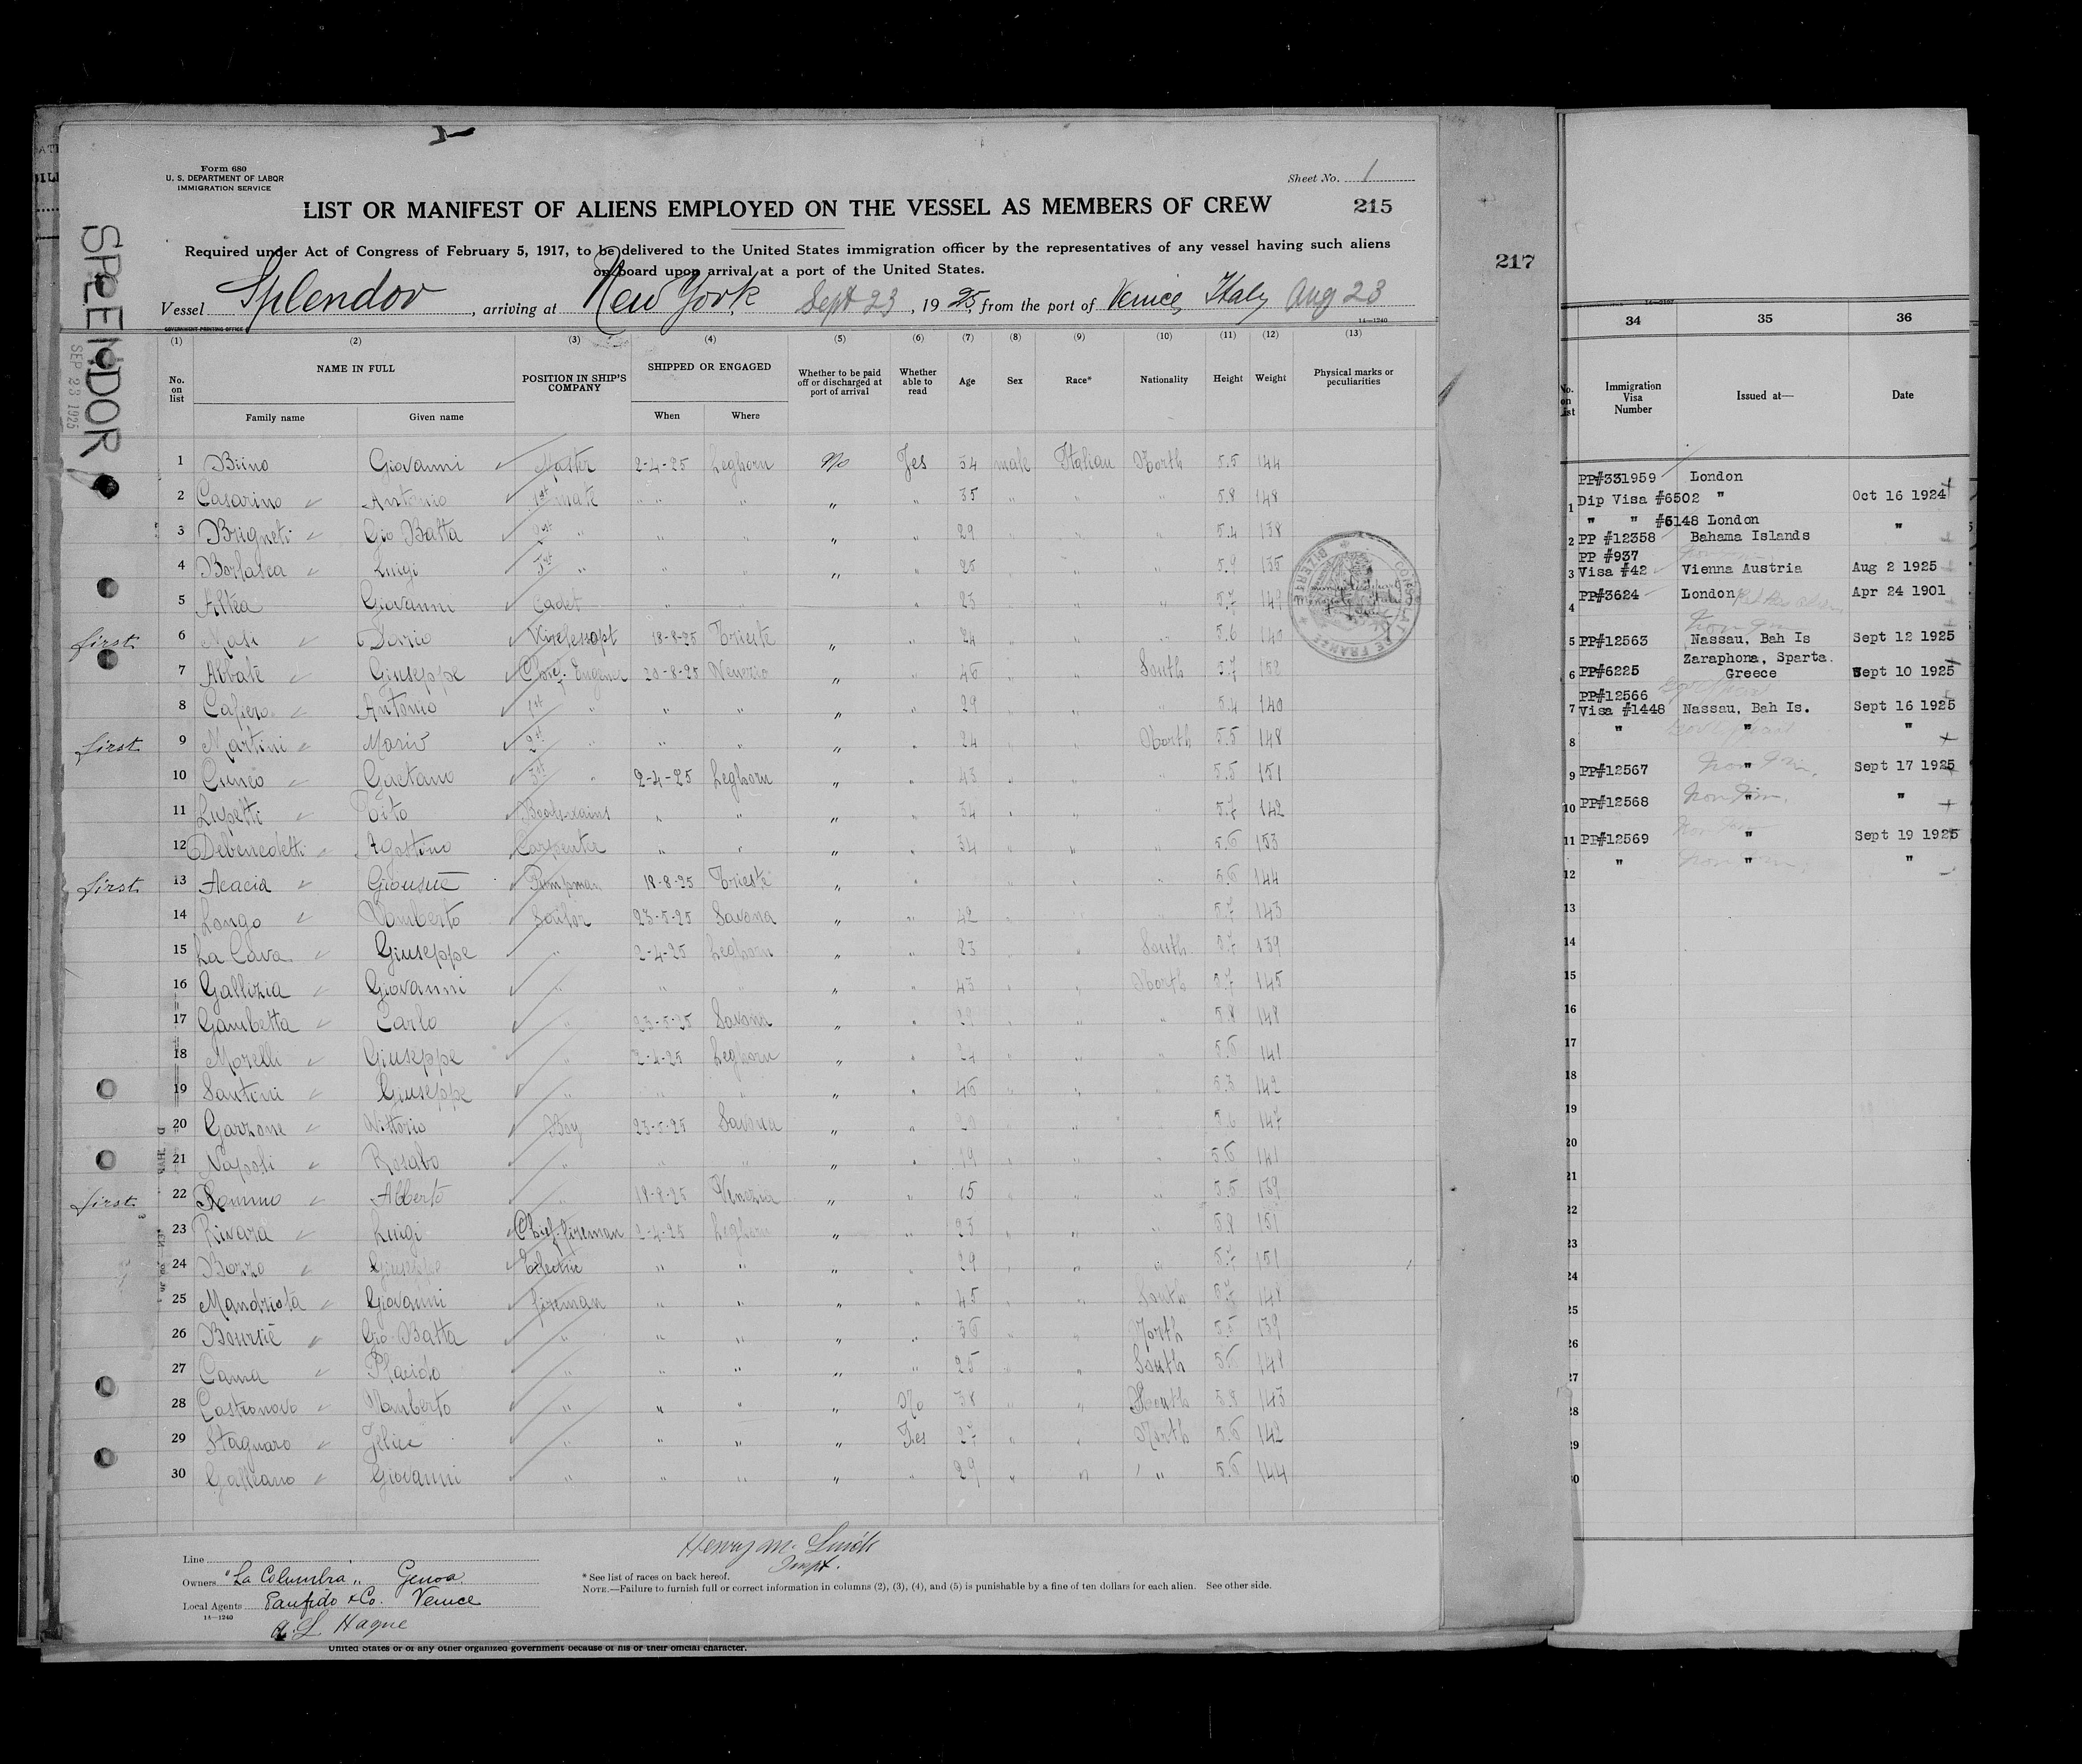 Form 680
U. S. DEPARTMENT OF LABOR
IMMIGRATION SERVICE
Sheet No. 1
LIST OR MANIFEST OF ALIENS EMPLOYED ON THE VESSEL AS MEMBERS OF CREW
215
Required under Act of Congress of February 5, 1917, to be delivered to the United States immigration officer by the representatives of any vessel having such aliens
on board upon arrival at a port of the United States.
Vessel Splendor, arriving at New York Sept 23, 1925, from the port of Venice, Italy Aug 23
GOVERNMENT PRINTING OFFICE
14—1240
SPLENDOR
SEP 23 1925
(1) (2) (3) (4) (5) (6) (7) (8) (9) (10) (11) (12) (13)
No. on list
NAME IN FULL
Family name
Given name
POSITION IN SHIP'S COMPANY
SHIPPED OR ENGAGED
When
Where
Whether to be paid off or discharged at port of arrival
Whether able to read
Age
Sex
Race*
Nationality
Height
Weight
Physical marks or peculiarities
1 Giovanni Master 2-4-25 Leghorn No Yes 54 male Italian North 5.5 144
2 Casarino Antonio 1st mate " " " " " 35 " " " 5.8 148
3 Brigneti Gio Batta " " " " " 29 " " " 5.4 138
4 Luigi " " " " " 25 " " " 5.9 135
5 Giovanni Cadet " " " " 23 " " " 5.7 149
first 6 Dario 18-8-25 Trieste " " 24 " " " 5.6 140
7 Abbate Giuseppe Chief Engineer 20-8-25 " " 46 " " South 5.7 152
8 Cafiero Antonio 1st " " " " " 29 " " " 5.4 140
first 9 Martini Mario " " " " " 24 " " North 5.5 148
10 Cuneo Gaetano " 2-4-25 Leghorn " " 43 " " " 5.5 151
11 Lupetti Tito " " " " 54 " " " 5.7 142
12 Debenedetti Agostino Carpenter " " " " 34 " " " 5.6 153
first 13 Acacia Giosuè Pumpman 18-8-25 Trieste " " " " " 5.6 144
14 Longo Umberto Sailor 23-5-25 Savona " " 42 " " " 5.7 143
15 La Cava Giuseppe " 2-4-25 Leghorn " " 23 " " South 5.7 139
16 Gallizia Giovanni " " " " " 43 " " North 5.7 145
17 Gambetta Carlo " 23-5-25 Savona " " 29 " " " 5.8 148
18 Morelli Giuseppe " 2-4-25 Leghorn " " 24 " " " 5.6 141
19 Santini Giuseppe " " " " " 46 " " " 5.3 142
20 Garzone Vittorio Boy 23-5-25 Savona " " " " " 5.6 147
21 Napoli " " " " " 19 " " " 5.6 141
first 22 Alberto " 18-8-25 Venezia " " 15 " " " 5.5 139
23 Rivara Luigi Chief fireman 2-4-25 Leghorn " " 23 " " " 5.8 151
24 Bozzo Giuseppe " " " " 29 " " " 5.7 151
25 Mandriota Giovanni fireman " " " " 45 " " South 5.7 148
26 Gio Batta " " " " " 36 " " North 5.5 139
27 Cama Placido " " " " " 25 " " South 5.6 148
28 Castronovo Umberto " " " " No 38 " " South 5.8 143
29 Stagnaro Felice " " " " Yes 27 " " North 5.6 142
30 Galleano Giovanni " " " " " 29 " " " 5.6 144
CONSULAT DE FRANCE
BIZERTE
Line
Owners "La Columbia" Genoa
Local Agents Panfido & Co. Venice
14—1240
A. L. Hague
Inspt.
* See list of races on back hereof.
NOTE.—Failure to furnish full or correct information in columns (2), (3), (4), and (5) is punishable by a fine of ten dollars for each alien. See other side.
United States or of any other organized government because of his or their official character.
217
34 35 36
No. on list
Immigration Visa Number
Issued at—
Date
PP#331959 London
1 Dip Visa #6502 " Oct 16 1924
" " #5148 London "
2 PP #12358 Bahama Islands
PP #937
3 Visa #42 Vienna Austria Aug 2 1925
4 PP#3624 London Apr 24 1901
5 PP#12563 Nassau, Bah Is Sept 12 1925
Zaraphona, Sparta.
6 PP#6225 Greece Sept 10 1925
PP#12566
7 Visa #1448 Nassau, Bah Is. Sept 16 1925
8 " " "
9 PP#12567 " Sept 17 1925
10 PP#12568 " "
11 PP#12569 " Sept 19 1925
12 " " "
13
14
15
16
17
18
19
20
21
22
23
24
25
26
27
28
29
30